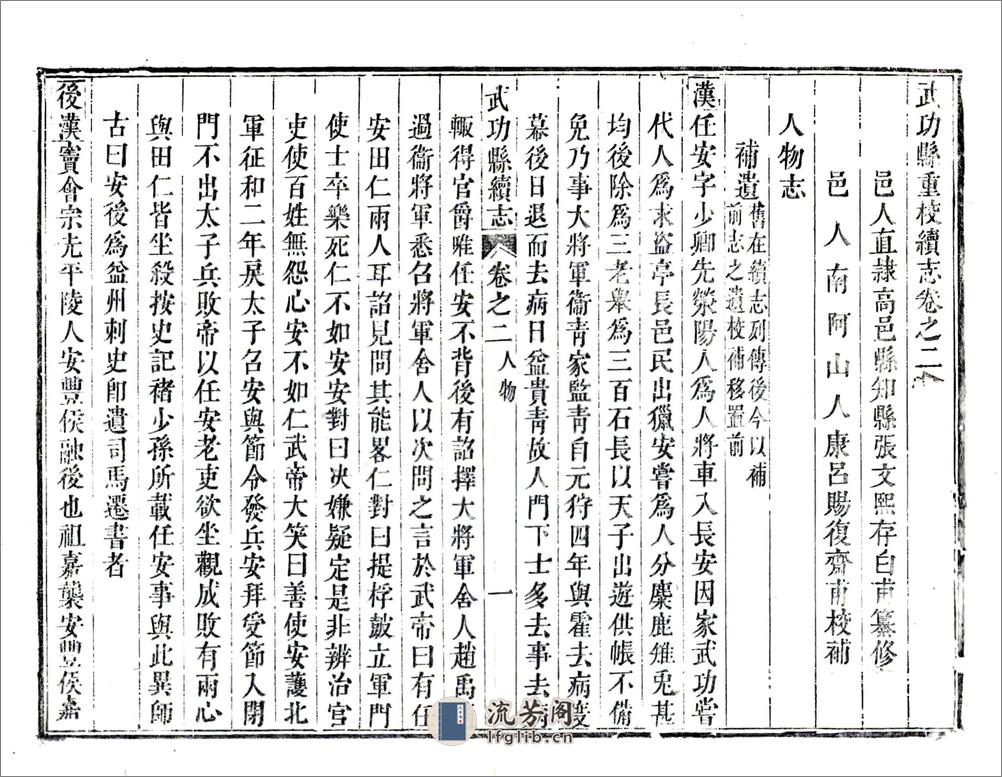 武功縣重校續志卷之二
邑人直隸高邑縣知縣張文熙存白甫纂修
邑人南阿山人康呂賜復齋甫校補
人物志
補遺舊在續志列傳後今以補
前志之遺校補移置前
漢任安字少卿先滎陽人爲人將車入長安因家武功嘗
代人爲求盜亭長邑民出獵安嘗爲人分麋鹿雉兎甚
均後除爲三老舉爲三百石長以天子出遊供帳不備
免乃事大將軍衞青家監青自元狩四年與霍去病度
幕後日退而去病日益貴青故人門下士多去事去病
武功縣續志 卷之二 人物 一
輒得官爵唯任安不背後有詔擇大將軍舍人趙禹
過衞將軍悉召將軍舍人以次問之言於武帝曰有任
安田仁兩人耳詔見問其能畧仁對曰提桴鼓立軍門
使士卒樂死仁不如安安對曰决嫌疑定是非辨治官
吏使百姓無怨心安不如仁武帝大笑曰善使安護北
軍征和二年戾太子召安與節令發兵安拜受節入閉
門不出太子兵敗帝以任安老吏欲坐觀成敗有兩心
與田仁皆坐殺按史記褚少孫所載任安事與此異師
古曰安後爲益州刺史卽遺司馬遷書者
後漢竇會宗先平陵人安豐侯融後也祖嘉襲安豐侯嘉
流芳阁
lfglib.cn